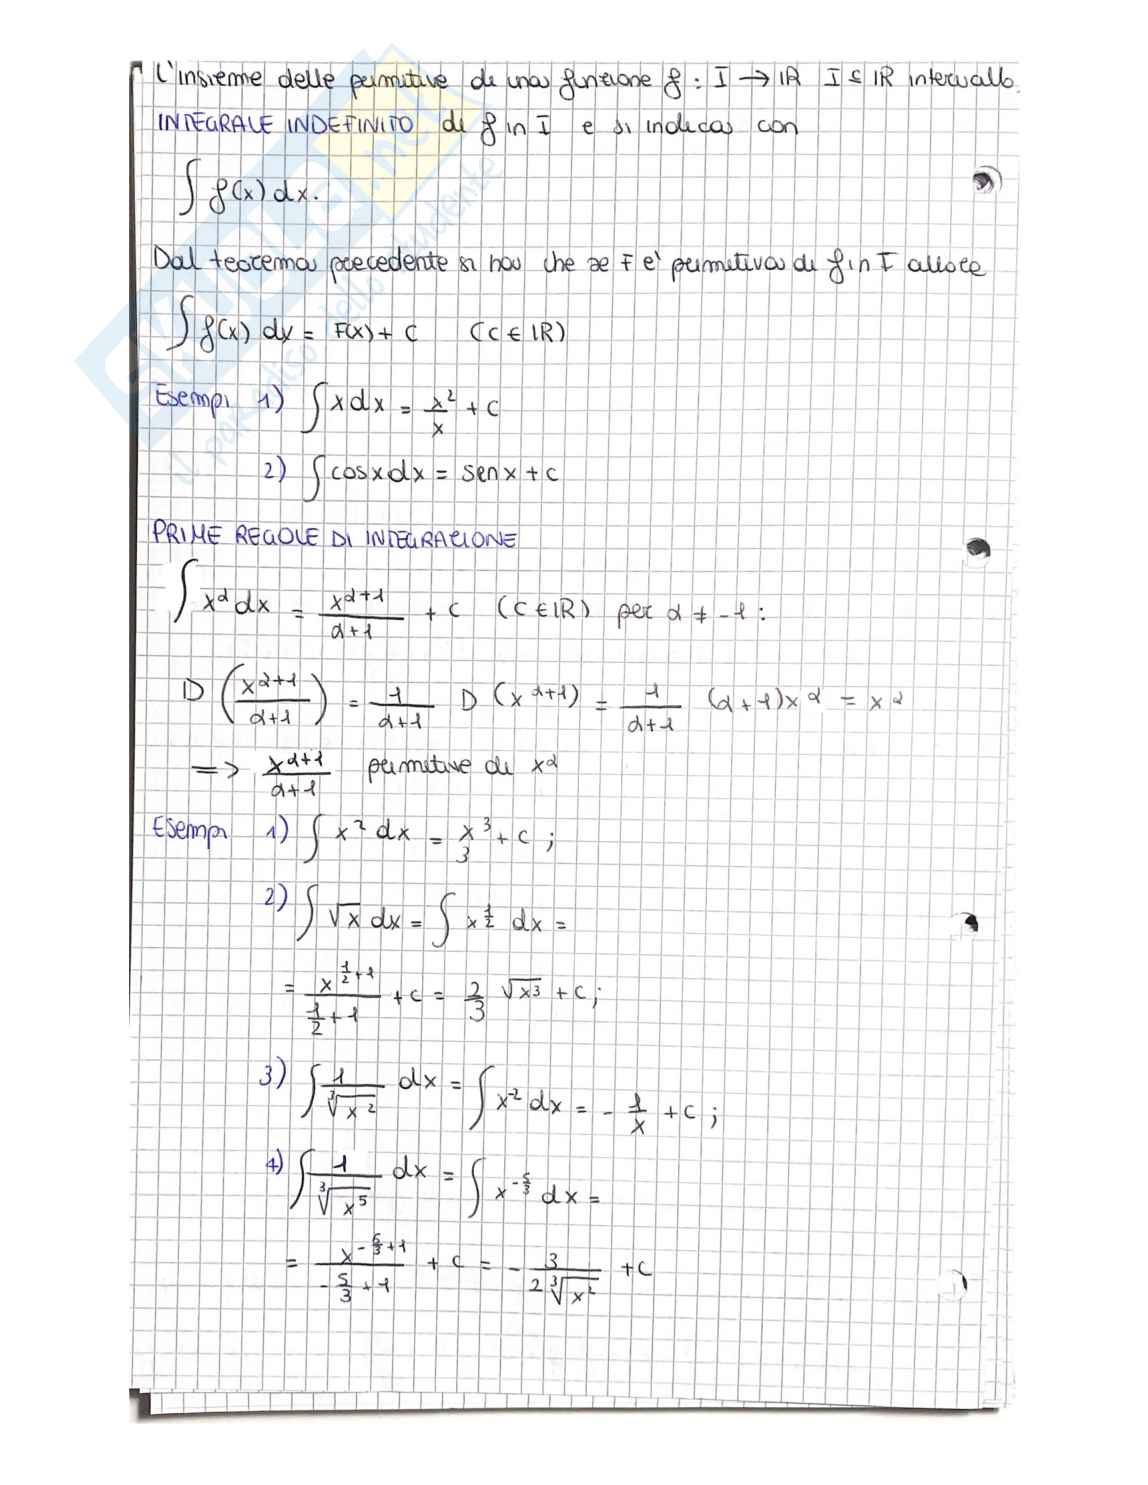 L'insieme delle primitive di una funzione f : I → ℝ I ⊆ ℝ intervallo.
INTEGRALE INDEFINITO di f in I e si indica con
∫ f(x) dx.
Dal teorema precedente si ha che se F è primitiva di f in I allora
∫ f(x) dx = F(x) + C (C ∈ ℝ)
Esempi 1) ∫ x dx = x²/x + C
2) ∫ cosx dx = senx + C
PRIME REGOLE DI INTEGRAZIONE
∫ x^α dx = x^(α+1)/(α+1) + C (C ∈ ℝ) per α ≠ -1 :
D (x^(α+1)/(α+1)) = 1/(α+1) D (x^(α+1)) = 1/(α+1) (α+1)x^α = x^α
=> x^(α+1)/(α+1) primitive di x^α
Esempi 1) ∫ x² dx = x³/3 + C ;
2) ∫ √x dx = ∫ x^(1/2) dx =
= x^(1/2+1)/(1/2+1) + C = 2/3 √x³ + C ;
3) ∫ 1/∛x² dx = ∫ x^-2 dx = - 1/x + C ;
4) ∫ 1/∛x⁵ dx = ∫ x^(-5/3) dx =
= x^(-5/3+1)/(-5/3+1) + C = - 3/(2∛x²) + C
SKUOLA.net
il paradiso dello studente